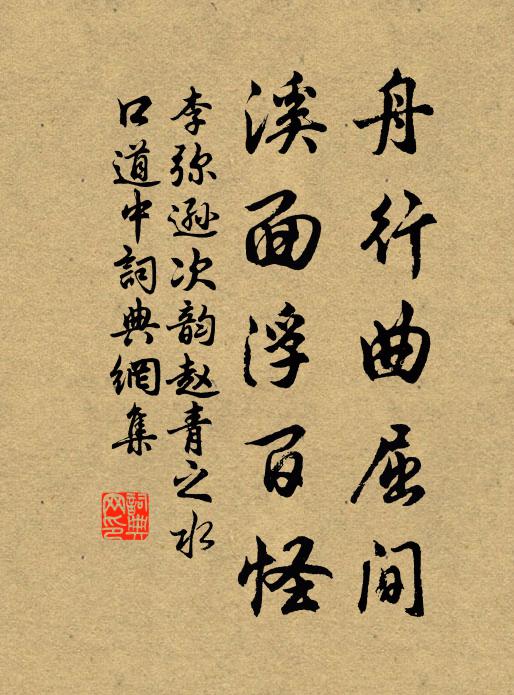 舟行曲屈间
溪面浮百怪
李弥逊次韵赵青之水
口道中詞典網集
詞典网印